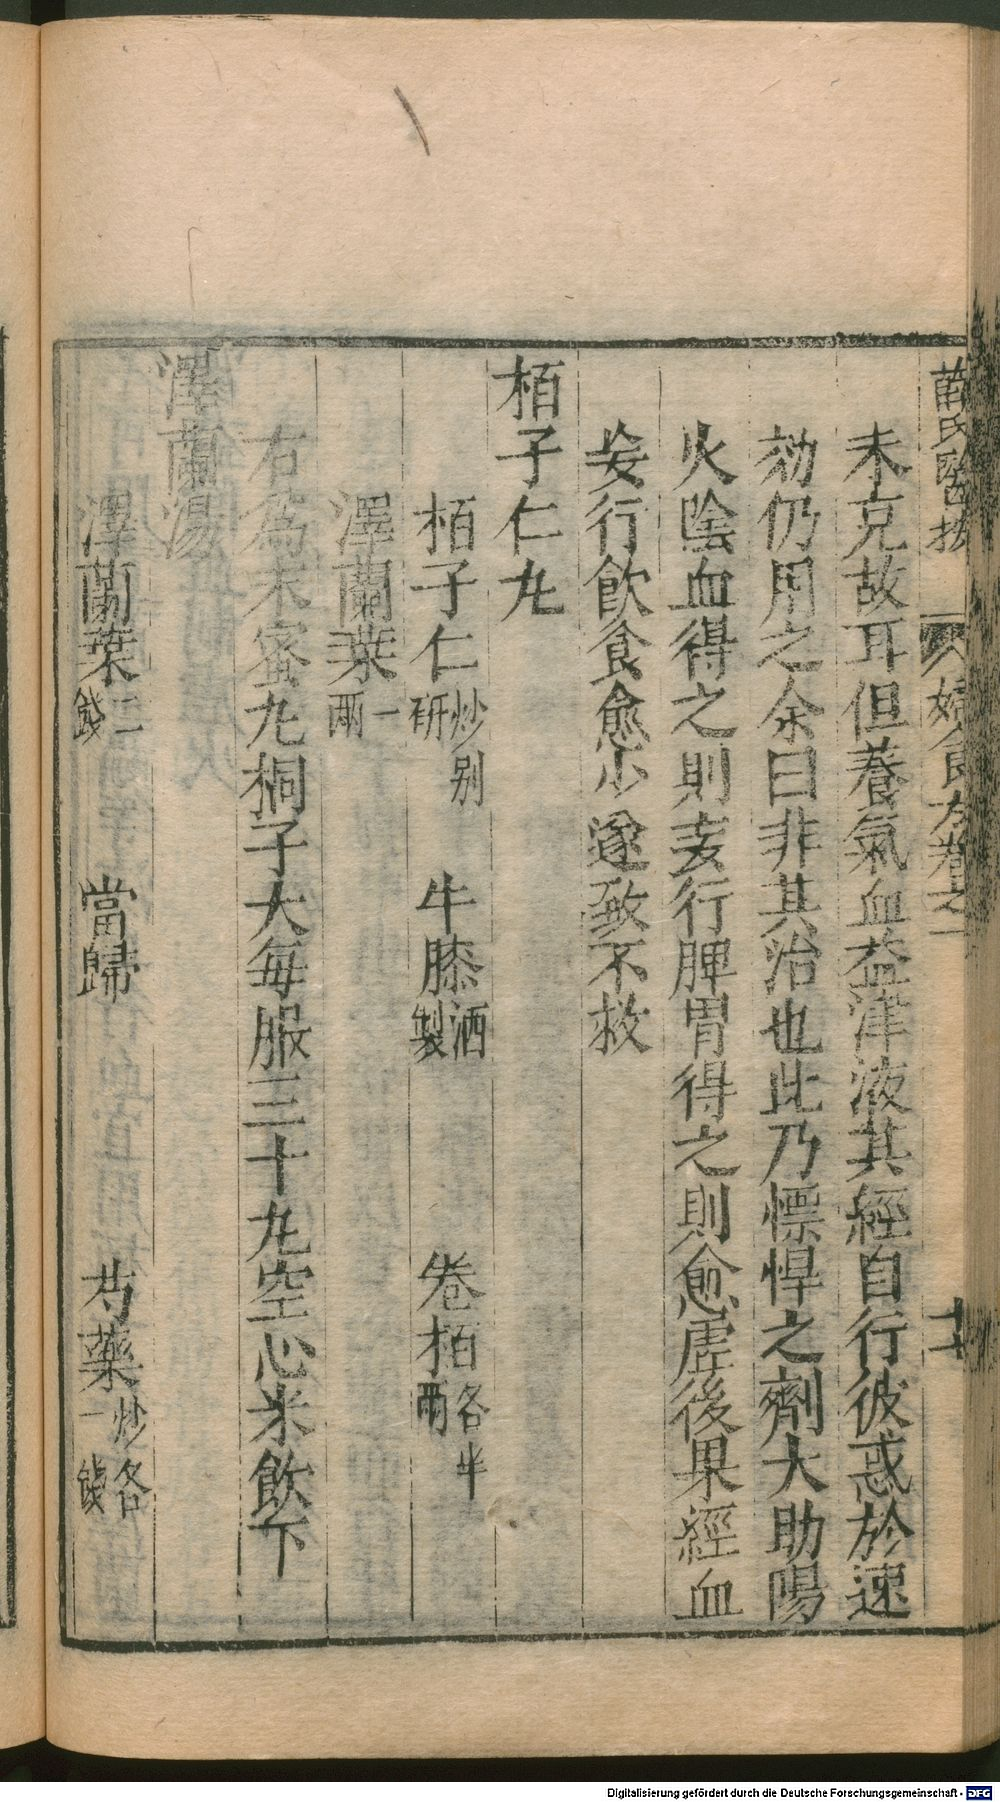 薛氏醫按 婦人良方卷之一 十六
未克故耳但養氣血益津液其經自行彼惑於速
効仍用之余曰非其治也此乃慓悍之劑大助陽
火陰血得之則妄行脾胃得之則愈虛後果經血
妄行飲食愈少遂致不救
栢子仁丸
栢子仁炒別研 牛膝酒製 卷栢各半兩
澤蘭葉一兩
右爲末蜜丸桐子大每服三十丸空心米飲下
澤蘭湯
澤蘭葉三錢 當歸 芍藥炒各一錢
Digitalisierung gefördert durch die Deutsche Forschungsgemeinschaft - DFG